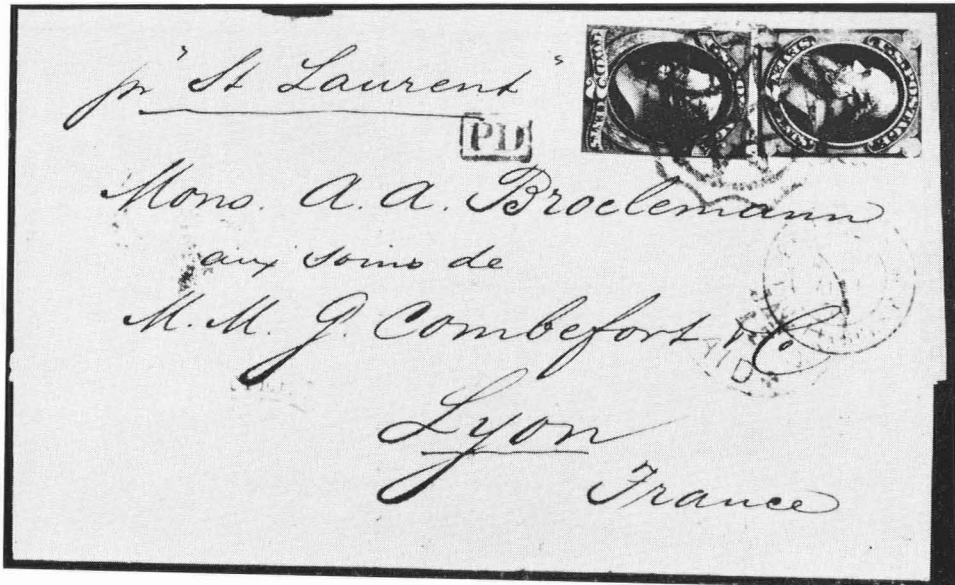 pr "St Laurent"
PD
Mons. A. A. Broelemann
aux soins de
M. M. G. Combefort & C
Lyon
France